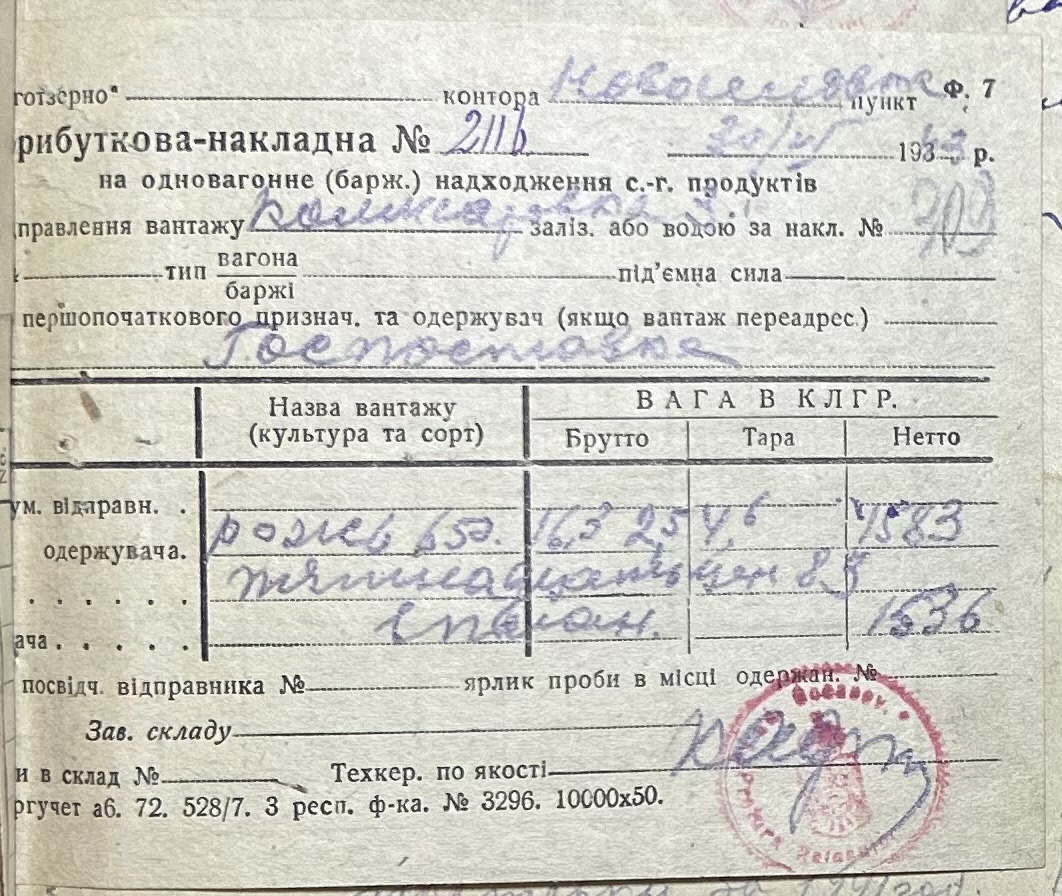 готзерно" контора пункт Ф. 7
рибуткова-накладна № 2116 193 р.
на одновагонне (барж.) надходження с.-г. продуктів
правлення вантажу заліз. або водою за накл. № 303
тип вагона
баржі під'ємна сила
першопочаткового признач. та одержувач (якщо вантаж переадрес.)
Госпоставка
Назва вантажу
(культура та сорт)
ВАГА В КЛГР.
Брутто Тара Нетто
ум. відправн. .
одержувача. рожь 1583
пятнадцать цен 83
ача . . . . . 1536
посвідч. відправника № ярлик проби в місці одержан. №
Зав. складу
и в склад № Техкер. по якості
ргучет аб. 72. 528/7. 3 респ. ф-ка. № 3296. 10000х50.